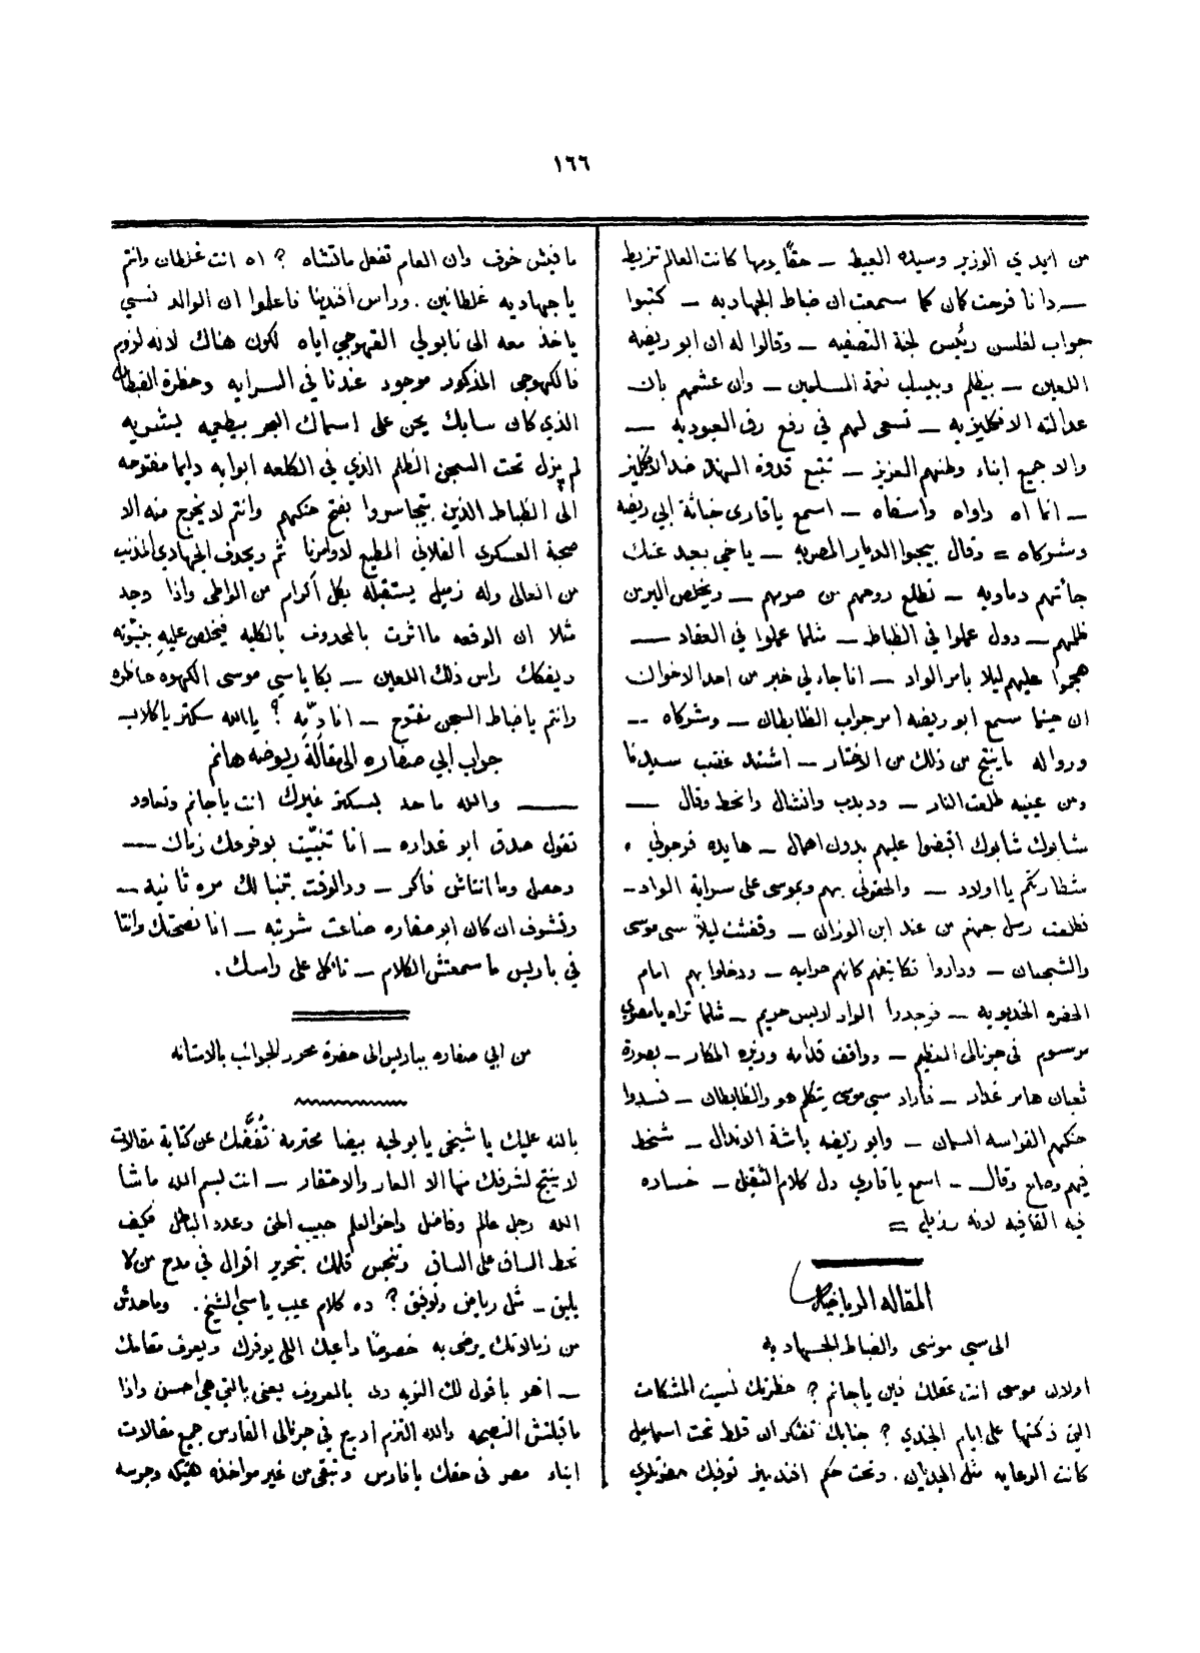 ١٦٦
من ايدي الوزير وسيده العبيط — حقًا يومها كانت العالم تزيط
— وانا فرحت كان كما سمعت ان ضباط الجهاديه — كتبوا
جواب لفلسن رئيس لجنة التصفيه — وقالوا له ان ابو ريضه
اللعين — بيظلم وبيسلب نعمة المسلمين — وان عشمهم بان
عدالته الانكليزيه — تسعى لهم في رفع رق العبوديه —
والا جميع ابناء وطنهم العزيز — تتبع قدوة الهند ضد الانكليز
— انما اه واواه واسفاه — اسمع ياقارى خباثة ابي ريضه
وشركاه = وقال بيحبوا الديار المصريه — ياخي بعيد عنك
جائتهم دماويه — تطلع روحهم من صويهم — ويخلص البرين
ظلمهم — دول عملوا في الظباط — مثلما عملوا في العقاد —
هجموا عليهم ليلا بامر الواد — انا جاء لي خبر من احد الاخوان
ان حينما سمع ابو ريضه امر جواب الظابطان — وشركاه —
ورواله ماينتج من ذلك من الاختار — اشتد غضب سيدنا
ومن عينيه طلعت النار — ودبدب وانشال وانحط وقال —
شابوك شابوك اقبضوا عليهم بدون اهمال — هايده فرجوني
شطارتكم يا اولاد — والحقوني بهم وبموسى على سراية الواد —
فطلعت رسل جهنم من عند ابن الوزان — وقفشت ليلاً سى موسى
والشجعان — وداروا تكاتيفهم كانهم حراميه — ودخلوا بهم امام
الحضره الخديويه — فوجدوا الواد لابس حريم — مثلما تراه يامصري
مرسوم في جرنالي العظيم — وواقف قدامه وزيره المكار — بصورة
ثعبان هامر غدار — فاراد سي موسى يتكلم هو والظابطان — فسدوا
حنكهم القواسه السمان — وابو ريضه باشة الاندال — شخط
فيهم وصاح وقال — اسمع ياقاري دل كلام التقيل — خساره
فيه القافيه لانه رذيل =
المقاله الرياضيه
الى سي موسى والضباط الجهاديه
اولادن موسى انت عقلك فين ياجانم ؟ حظرتك نسيت المشكلات
التي ذكتها على ايام الجندي ؟ جنابك تفتكر ان قلط تحت اسماعيل
كانت الرعايه مثل الجديان. وتحت حكم افندينز توفيك حفرتلري
مافيش خوف وان العام تفعل ماتشاه ؟ اه انت غلطان وانتم
ياجهاديه غلطانين. وراس افندينا فاعلموا ان الوالد نسي
ياخذ معه الى نابولي القهوجي اياه لكون هناك لانه لزوم
فالكهوجي المذكور موجود عندنا في السرايه وحظرة القبطان
الذي كان سابك يحن على اسماك البحر بيطعمه بشريه
لم يزل تحت السجن الظلم الذي في الكلعه ابوابه دايما مفتوحه
الى الظباط الذين يتجاسروا بفتح حنكهم وانتم لايخرج منه الا
صحبة العسكري الفلاني المطيع لاوامرنا ثم ويحدف الجهادي المذنب
من العالى وله زميل يستقبله بكل أكرام من الواطى واذا وجد
مثلا ان الوقعه ما اثرت بالمحدوف بالكليه فيخلص عليه بنبّوته
ويفكك راس ذلك اللعين — بكا ياسي موسى الكهوه حاظره
وانتم ياضباط السجن مفتوح — انا دبّه ؟ يا الله سكتر ياكلاب
جواب ابي صفاره الى مقالة ريوضه هانم
— والله ماحد بسكتر غيرك انت ياجانم وتعاود
تقول صدق ابو غداره — انا تنبّيت بوقوعك زمان —
وحصل وما انتاش فاكر — ودالوقت بتنبا لك مره ثانيه —
وتشوف ان كان ابو صفاره ضاعت شربته — انا نصحتك وانتا
في باريس ما سمعتش الكلام — تاكل على راسك.
من ابي صفاره بباريس الى حضرة محرر الجوائب بالاستانه
بالله عليك يا شيخى يابو لحيه بيضا محترمه تفُضّك عن كتابة مقالات
لا ينتج لشرفك منها الا العار والاحتقار — انت بسم الله ماشا
الله رجل عالم وفاضل واخو العلم حبيب الحق وعدو الباطل فكيف
تحط الساق على الساق وتنجس قلمك بتحرير اقوال في مدح من لا
يليق — مثل رياض وتوفيق ؟ ده كلام عيب ياسي الشيخ. وماحدش
من زبالاتك يرضى به خصوصًا داعيك اللي يوقرك ويعرف مقامك
— اهو باقول لك النوبه دى بالمعروف يعنى بالتي هي احسن واذا
ماقبلتش النصيحه والله التزم أدرج في جرنالى القادم جميع مقالات
ابناء مصر في حقك يافارس وتبقى من غير مواخذه هتيكه وجرسه